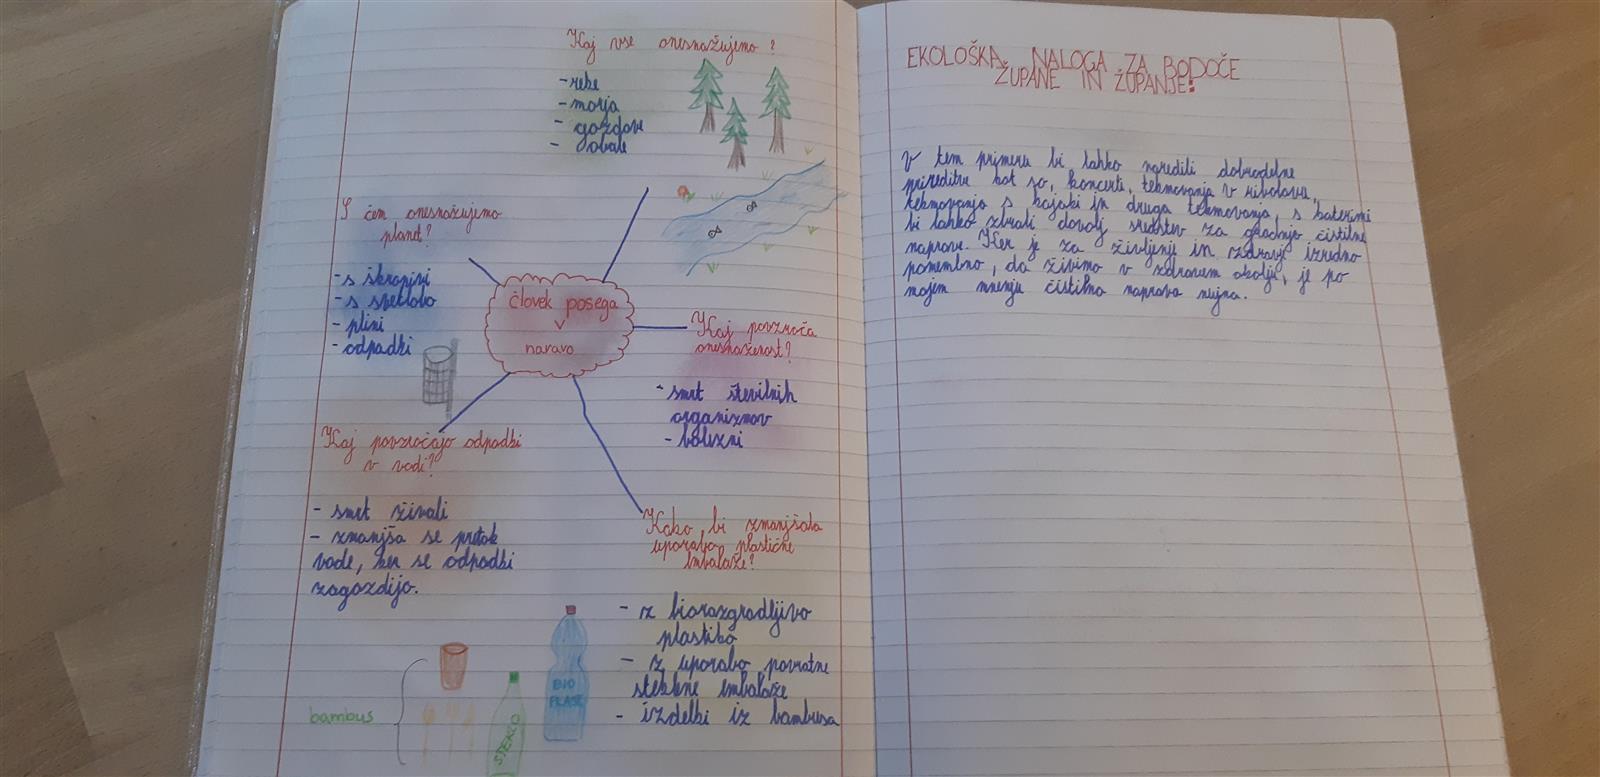 Kaj vse onesnažujemo?
- reke
- morja
- gozdove
- obale
S čem onesnažujemo
planet?
- s škropivi
- s svetlobo
- plini
- odpadki
človek posega
v
naravo
Kaj povzroča
onesnaženost?
- smrt številnih
organizmov
- bolezni
Kaj povzročajo odpadki
v vodi?
- smrt živali
- zmanjša se pretok
vode, ker se odpadki
zagozdijo.
Kako bi zmanjšala
uporabo plastične
embalaže?
- z biorazgradljivo
plastiko
- z uporabo povratne
steklene embalaže
- izdelki iz bambusa
bambus
STEKLO
BIO
PLAST
EKOLOŠKA NALOGA ZA BODOČE
ŽUPANE IN ŽUPANJE!
V tem primeru bi lahko naredili dobrodelne
prireditve kot so, koncerti, tekmovanja v ribolovu,
tekmovanja s kajaki in druga tekmovanja, s katerimi
bi lahko zbrali dovolj sredstev za gradnjo čistilne
naprave. Ker je za življenje in zdravje izredno
pomembno, da živimo v zdravem okolju, je po
mojem mnenju čistilna naprava nujna.